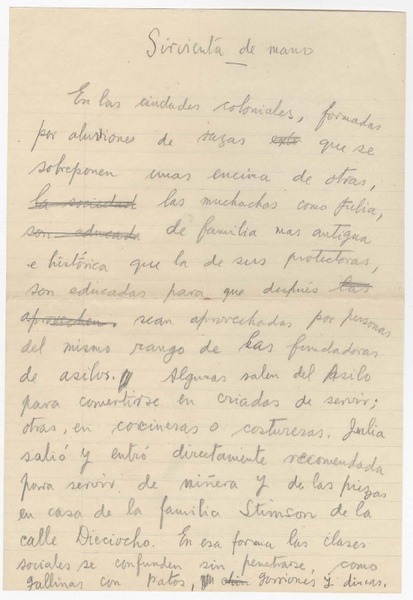 Sirvienta de mano
En las ciudades coloniales, formadas
por aluviones de razas este que se
sobreponen unas encima de otras,
la sociedad las muchachas como Julia,
son educada de familia mas antigua
e histórica que la de sus protectoras,
son educadas para que después las
aprovechen, sean aprovechadas por personas
del mismo rango de las fundadoras
de asilos. Algunas salen del Asilo
para convertirse en criadas de servir;
otras, en cocineras o costureras. Julia
salió y entró directamente recomendada
para servir de niñera y de las piezas
en casa de la familia Stimson de la
calle Dieciocho. En esa forma las clases
sociales se confunden sin penetrarse, como
gallinas con patos, gorriones y diucas.